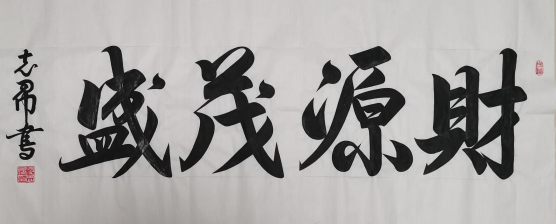 財源茂盛
志昂書